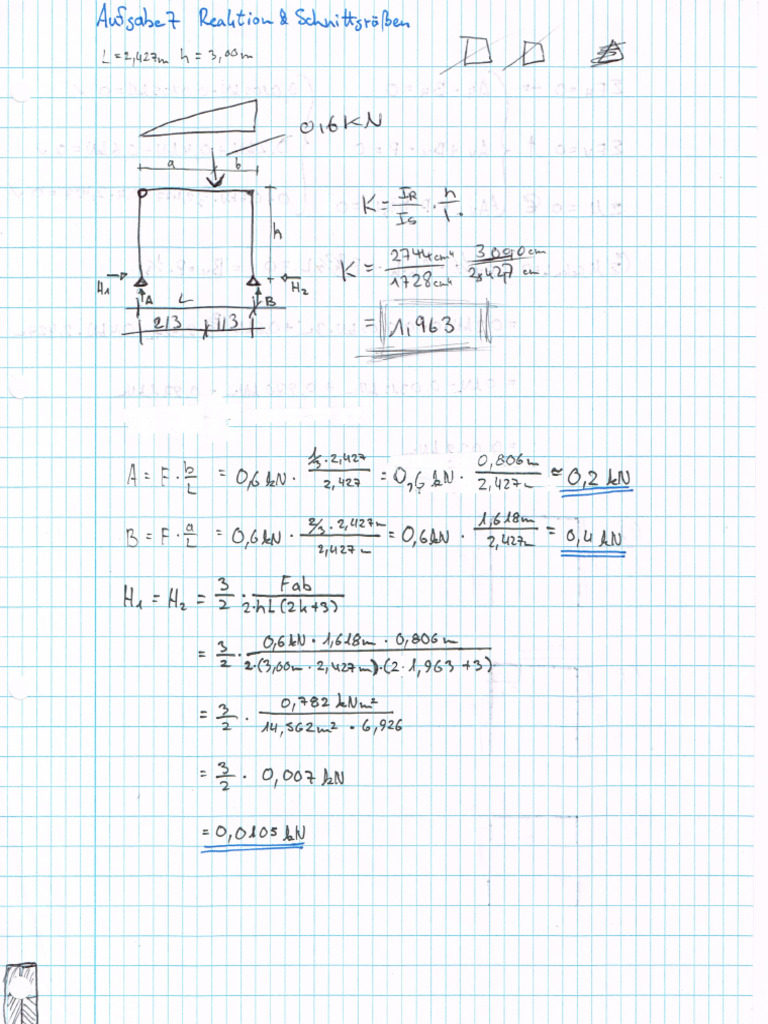 Aufgabe 7 Reaktion & Schnittgrößen
L = 2,427m h = 3,00m
0,6 KN
a b
h
H1 A L B H2
2/3 1/3
K = IR/IS · h/l.
K = 2744cm⁴/1728cm⁴ · 3,000cm/2,427 cm
= 1,963
A = F · b/L = 0,6 kN · (1/3 · 2,427)/2,427 = 0,6 kN · 0,806m/2,427m ≈ 0,2 kN
B = F · a/L = 0,6 kN · (2/3 · 2,427m)/2,427m = 0,6 kN · 1,618m/2,427m = 0,4 kN
H1 = H2 = 3/2 · Fab/(2·hL(2k+3))
= 3/2 · (0,6 kN · 1,618m · 0,806m)/(2·(3,00m · 2,427m)·(2·1,963+3))
= 3/2 · 0,782 kNm²/(14,562m² · 6,926)
= 3/2 · 0,007 kN
= 0,0105 kN